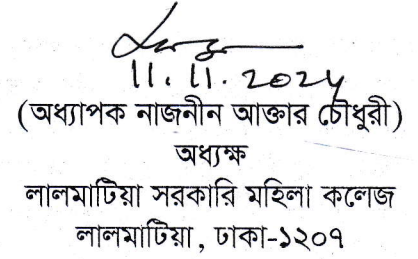 11.11.2024
(অধ্যাপক নাজনীন আক্তার চৌধুরী)
অধ্যক্ষ
লালমাটিয়া সরকারি মহিলা কলেজ
লালমাটিয়া, ঢাকা-১২০৭